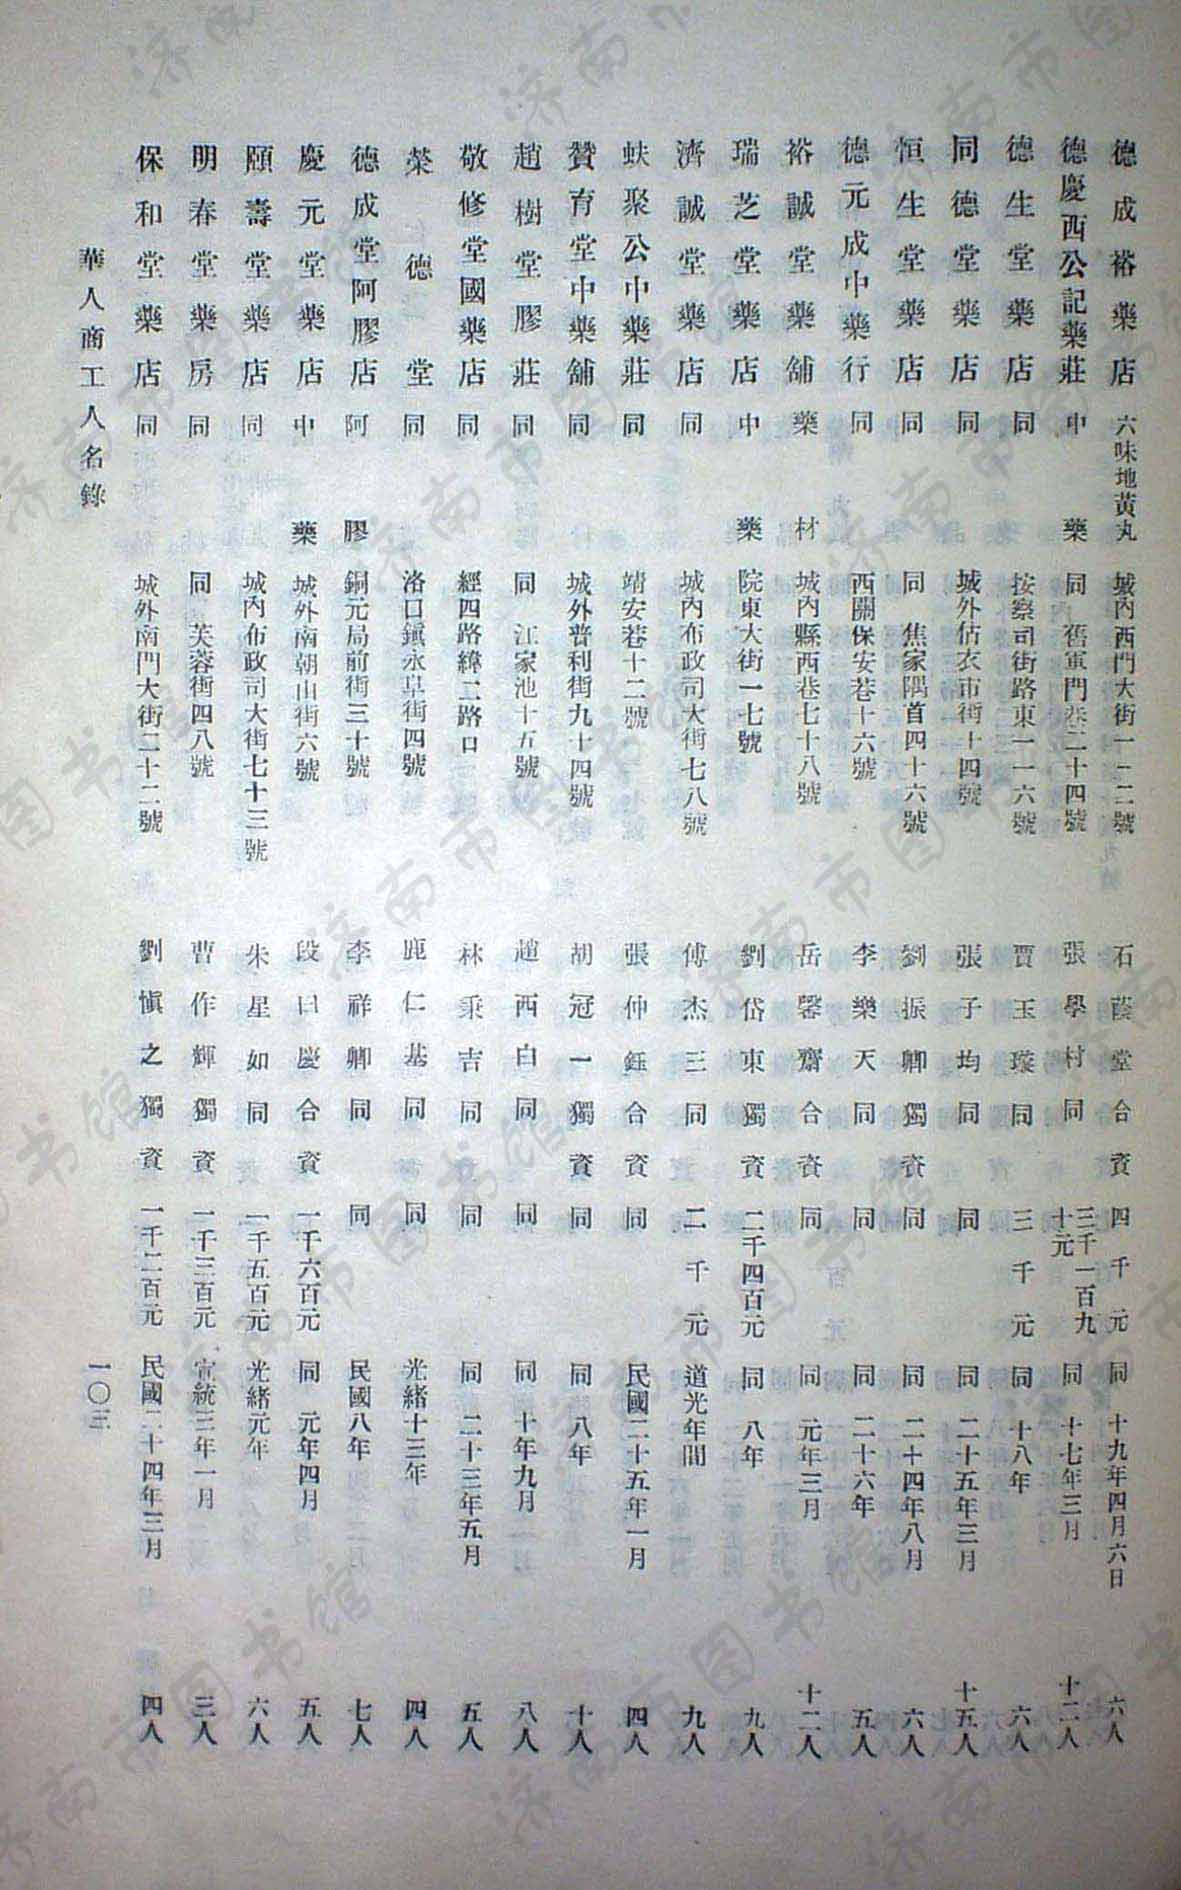 德成裕藥店 六味地黃丸 城內西門大街一二二號 石蔭堂 合資 四千元 同 十九年四月六日 六人
德慶西公記藥莊 中藥 同 舊軍門巷二十四號 張學村 同 三千一百九十元 同 十七年三月 十二人
德生堂藥店 同 按察司街路東一一六號 賈玉璇 同 三千元 同 十八年 六人
同德堂藥店 同 城外估衣市街十四號 張子均 同 同 同 二十五年三月 十五人
恒生堂藥店 同 同 焦家隅首四十六號 劉振卿 獨資 同 同 二十四年八月 六人
德元成中藥行 同 西關保安巷十六號 李樂天 同 同 同 二十六年 五人
裕誠堂藥舖 藥材 城內縣西巷七十八號 岳馨齋 合資 同 同 元年三月 十二人
瑞芝堂藥店 中藥 院東大街一七號 劉岱東 獨資 二千四百元 同 八年 九人
濟誠堂藥店 同 城內布政司大街七八號 傅杰三 同 二千元 道光年間 九人
蚨聚公中藥莊 同 靖安巷十二號 張仲鈺 合資 同 民國二十五年一月 四人
贊育堂中藥舖 同 城外普利街九十四號 胡冠一 獨資 同 同 八年 十人
趙樹堂膠莊 同 同 江家池十五號 趙西白 同 同 同 十年九月 八人
敬修堂國藥店 同 經四路緯二路口 林秉吉 同 同 同 二十三年五月 五人
榮德堂 同 洛口鎮永阜街四號 鹿仁基 同 同 光緒十三年 四人
德成堂阿膠店 阿膠 銅元局前街三十號 李祥卿 同 同 民國八年 七人
慶元堂藥店 中藥 城外南朝山街六號 段曰慶 合資 一千六百元 同 元年四月 五人
頤壽堂藥店 同 城內布政司大街七十三號 朱星如 同 一千五百元 光緒元年 六人
明春堂藥房 同 同 芙蓉街四八號 曹作輝 獨資 一千三百元 宣統三年一月 三人
保和堂藥店 同 城外南門大街二十二號 劉愼之 獨資 一千二百元 民國二十四年三月 四人
華人商工人名錄 一〇三
济南市图书馆